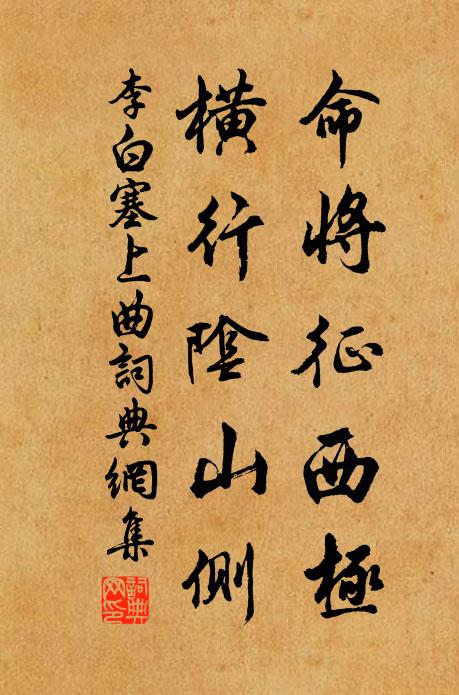 命將征西極
橫行陰山側
李白塞上曲詞典網集
詞典
网印